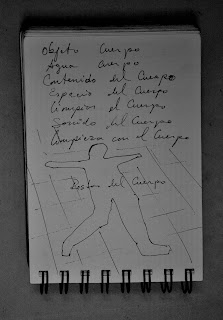 Objeto Cuerpo
Agua Cuerpo
Contenido del Cuerpo
Espacio del Cuerpo
Limpiar el Cuerpo
Sonido del Cuerpo
Limpieza con el Cuerpo
del Cuerpo